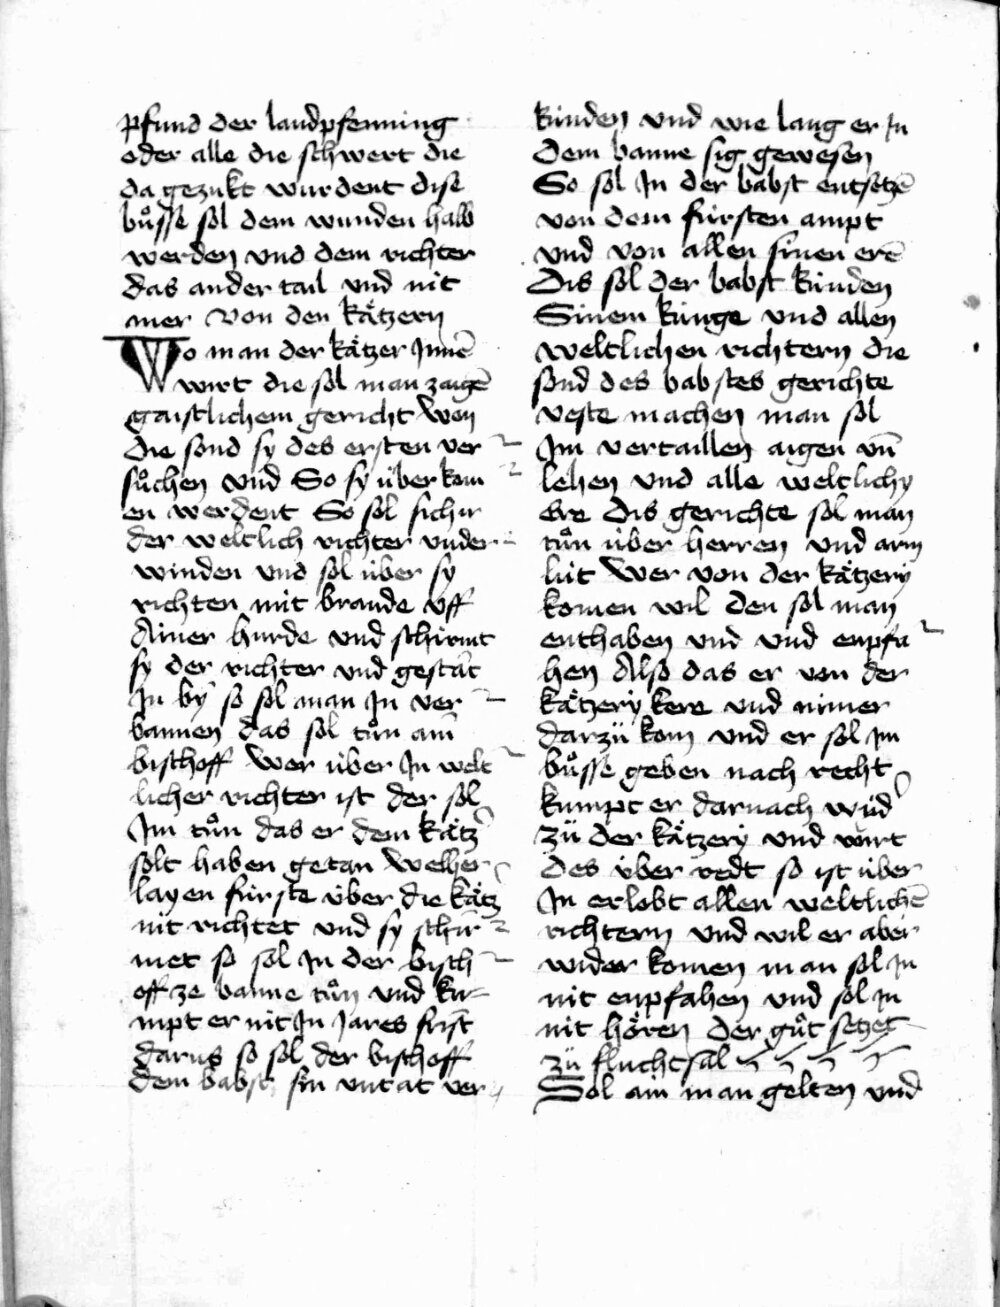 pfund der landpfenning
oder alle die schwert die
da gezukt wurdent dise
bůsse sol dem wunden halb
werden vnd dem richter
das ander tail vnd nit
mer Von den kåtzern
Wo man der kåtzer Innē
wirt die sol man zaigē
gaistlichem gericht Won
die sond sy des ersten ver
sůchen vnd So sy überkom
en werdent So sol sich ir
der weltlich richter vnder
winden vnd sol über sy
richten mit brande vff
Ainer hurde vnd schirmt
sy der richter vnd gestāt
In by so sol man In ver
bannen das sol tůn ain
bischoff Wer über In welt
licher richter ist der sol
Im tůn das er dem kåtz
solt haben getan Welher
layen fürste über die kåtz
nit richtet vnd sy schir
met so sol In der bisch
off ze banne tůn vnd ku
mpt er nit In Jares frist
darus so sol der bischoff
dem babst sin vntat ver
künden vnd wie lang er In
dem banne sig gewesen
So sol In der babst entsetzē
von dem fürsten ampt
vnd von allen sinen erē
Dis sol der babst künden
Sinem künge vnd allen
weltlichen richtern die
sond des babstes gerichte
veste machen man sol
Im vertaillen aigen vn̄
lehen vnd alle weltlichy
ere Dis gerichte sol man
tůn über herren vnd arm
lüt Wer von der kåtzery
komen wil den sol man
enthaben vnd vnd enpfa
hen Also das er von der
kåtzery kere vnd nimer
darzü kom vnd er sol Im
bůsse geben nach recht
kumpt er darnach wid
zü der kåtzery vnd wirt
des über redt so ist über
In erlobt allen weltlichē
richtern vnd wil er aber
wider komen man sol In
nit enpfahen vnd sol In
nit hören der gůt setzet
zü fluchtsal
Sol ain man gelten vnd